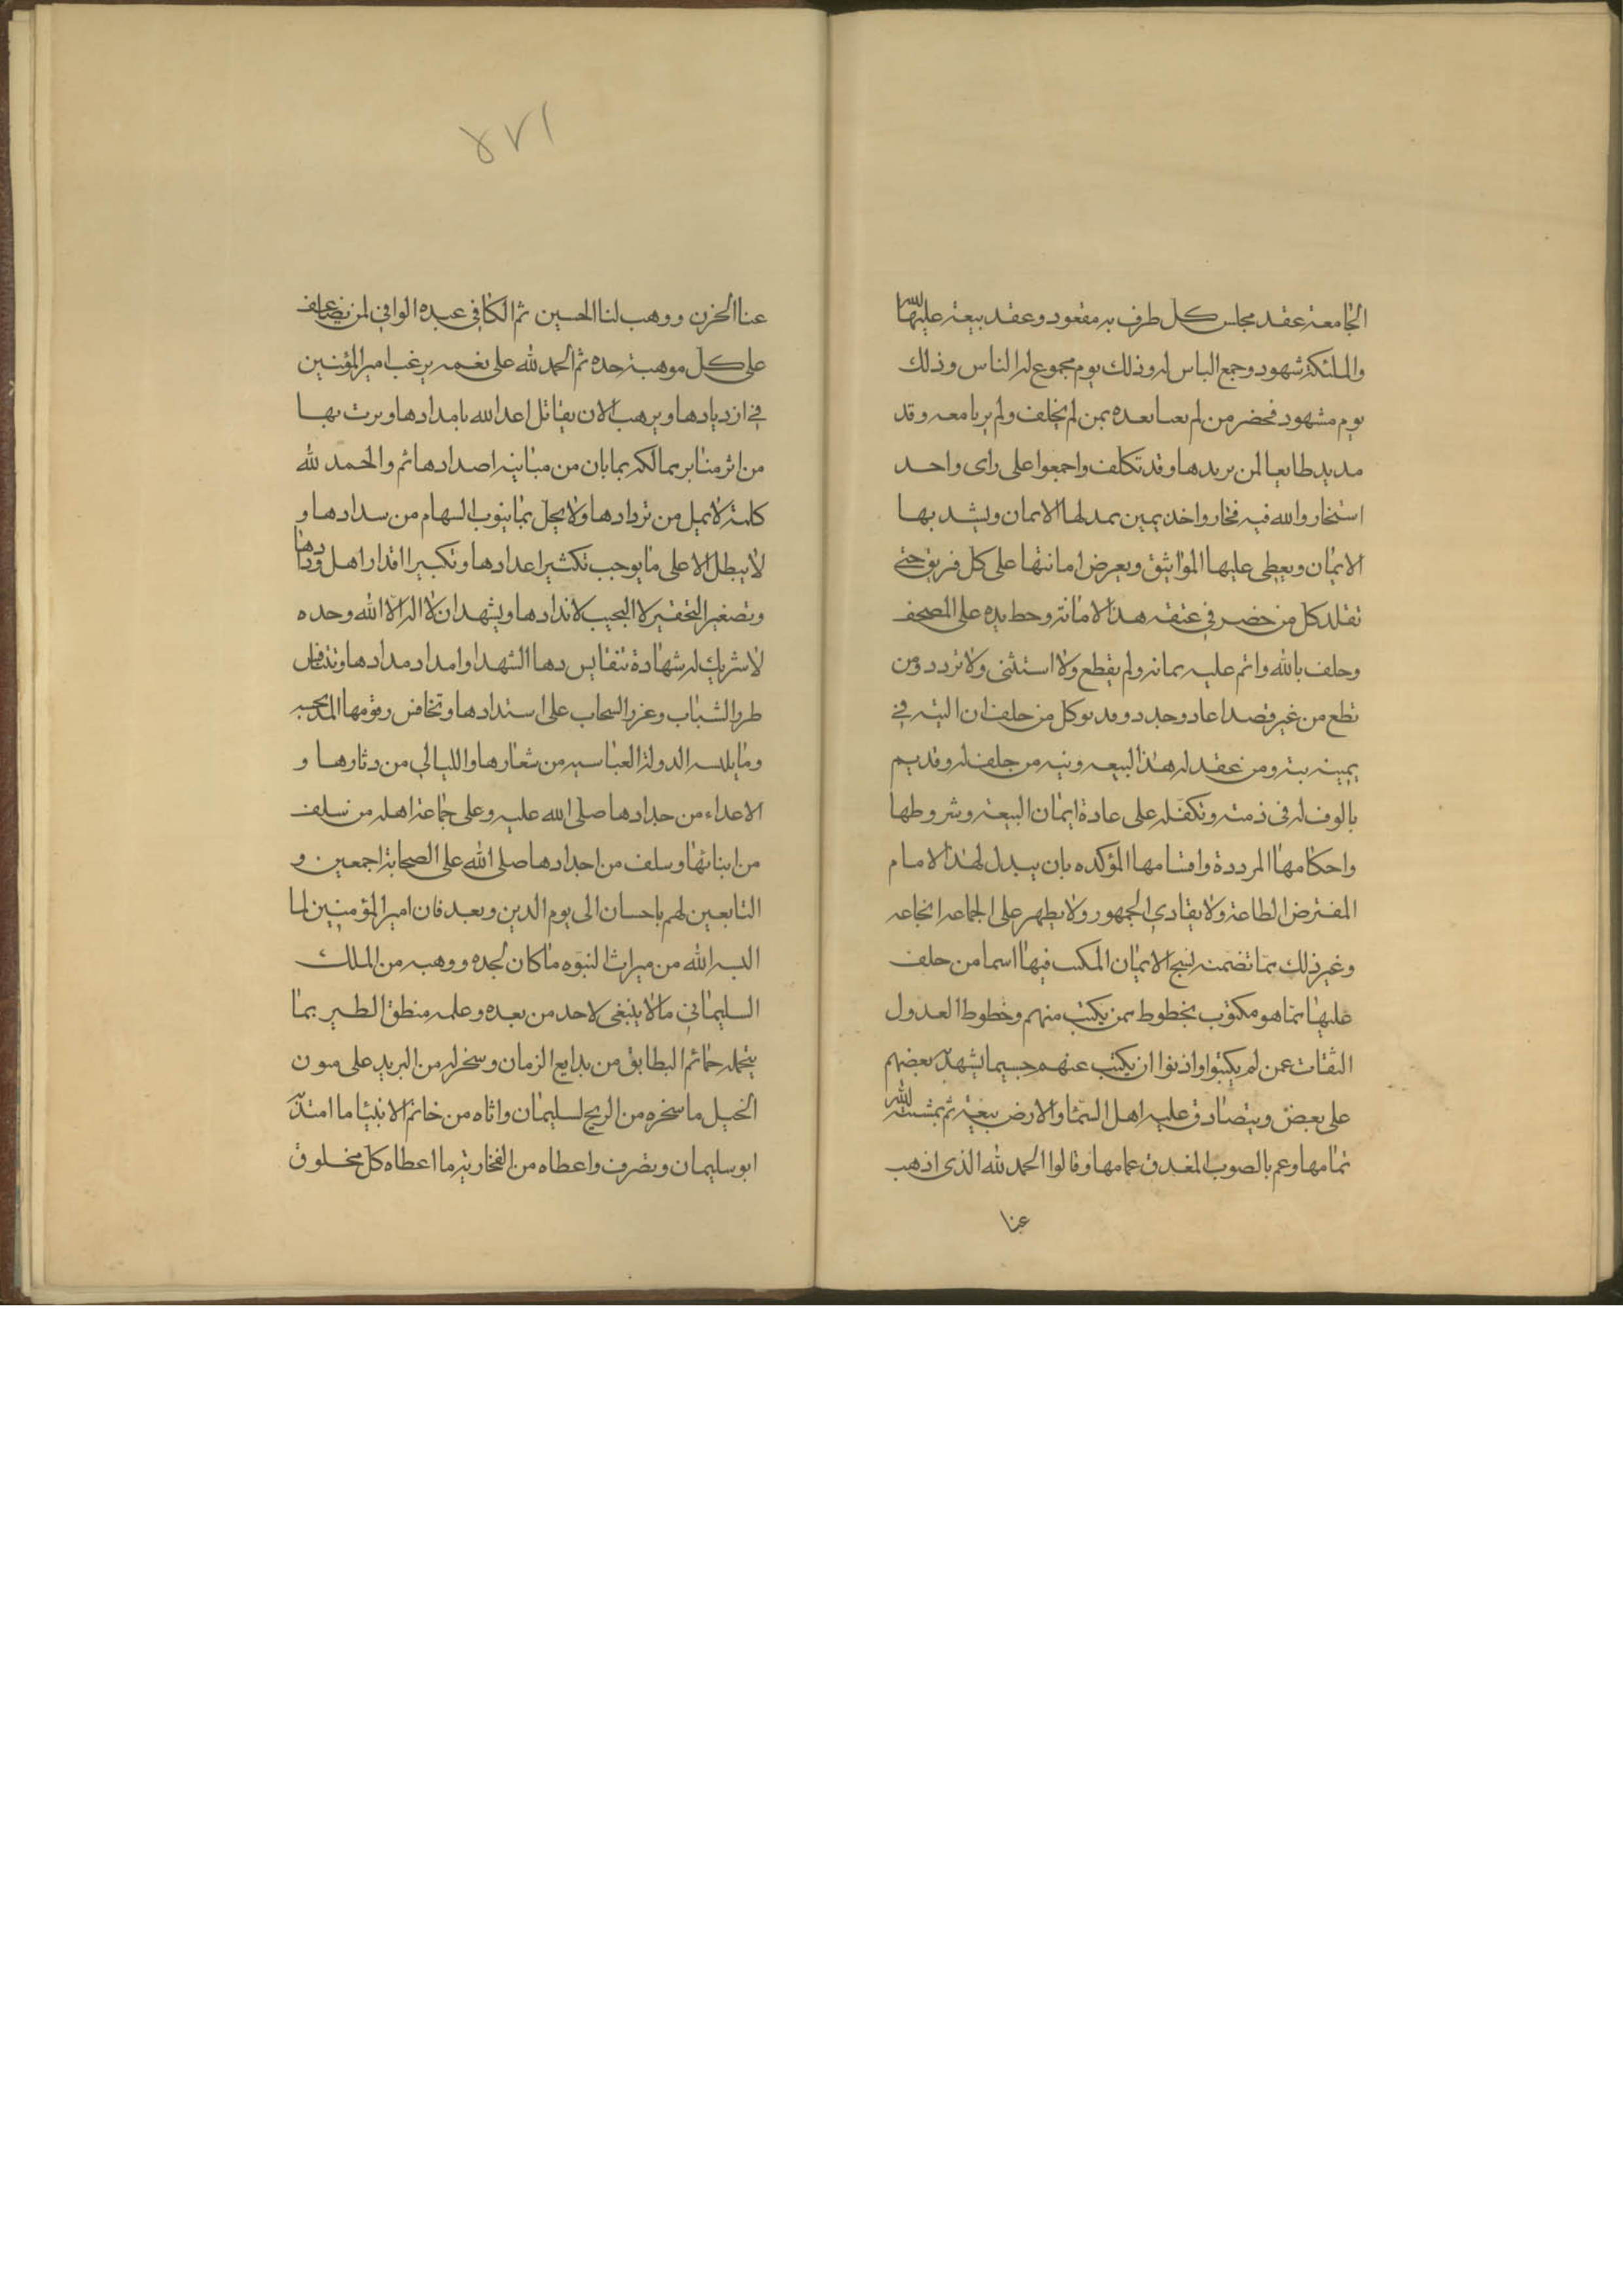 الجامعة عقد مجلس كل طرف به مقعود وعقد بيعة عليها الله
والملئكة شهود وجمع الناس له وذلك يوم مجموع له الناس وذلك
يوم مشهود فحضر من لم يعبا بعده بمن لم يخلف ولم يربا معه وقد
مد يد طايعا لمن يريدها وقد تكلف واجمعوا على راى واحد
استخاروا الله فيه فخار واخذ يمين يمد لها الايمان ويشد بها
الايمان ويعطى عليها المواثيق ويعرض امانتها على كل فريق حتى
تقلد كل من حضر في عنقه هذه الامانة وحط يده على المصحف
وحلف بالله واتم عليه يمانه ولم يقطع ولا استثنى ولا تردد ومن
قطع من غير قصد اعاد وجدد وقد نوى كل من حلف ان النية في
يمينه نية من عقد له هذه البيعة ونية من حلف له وقديم
بالوفا له فى ذمته وتكفله على عادة ايمان البيعة وشروطها
واحكامها المرددة واقسامها المؤكده بان يبدل لهذا الامام
المفترض الطاعة ولا يفادي الجمهور ولا يظهر على الجماعه انجاعه
وغير ذلك مما تضمنه نسخ الايمان المكتب فيها اسما من حلف
عليها مما هو مكتوب بخطوط من يكتب منهم وخطوط العدول
الثقات عمن لم يكتبوا واذنوا ان يكتب عنهم حسبما يشهد به بعضهم
على بعض ويتصادق عليه اهل السما والارض بيعة ثم بمشيئة الله
تمامها وعم بالصوب المغدق عمامها وقالوا الحمد لله الذى اذهب
عنا
١٧٨
عنا الحزن ووهب لنا الحسين ثم الكافي عبده الوافي لمن يضاعف
على كل موهبة حده ثم الحمد لله على نعمه يرغب امير المؤمنين
في ازديادها ويرهب الا ان يقاتل اعدا الله بامدادها ويرب بها
من اثر منابر ممالكه بما بان من مباينه اضدادها ثم والحمد لله
كلمة لا يمل من تردادها ولا يخل بما ينوب السهام من سدادها و
لا يبطل الا على ما يوجب تكثير اعدادها وتكبير اقدار اهل ودادها
وتصغير التحقير لا التجيب لاندادها ويشهد ان لا اله الا الله وحده
لا شريك له شهادة تتقايس دما الشهدا وامداد مدادها وتتنافس
طرر الشباب وغرر السحاب على استدادها وتخافض رقومها المدبجه
وما يلبسه الدولة العباسيه من شعارها والليالي من دثارها و
الاعداء من حدادها صلى الله عليه وعلى جماعة اهله من سلف
من ابنائها وسلف من اجدادها صلى الله على الصحابة اجمعين و
التابعين لهم باحسان الى يوم الدين وبعد فان امير المؤمنين لما
البسه الله من ميراث النبوه ما كان لجده ووهبه من الملك
السليماني ما لا ينبغى لاحد من بعده وعلمه منطق الطير بما
يتحمله حمائم البطايق من بدايع الزمان وسخر له من البريد على متون
الخيل ما سخره من الريح لسليمان واتاه من خاتم الانبيا ما امتد به
ابو سليمان وتصرف واعطاه من الفخار به ما اعطاه كل مخلوق